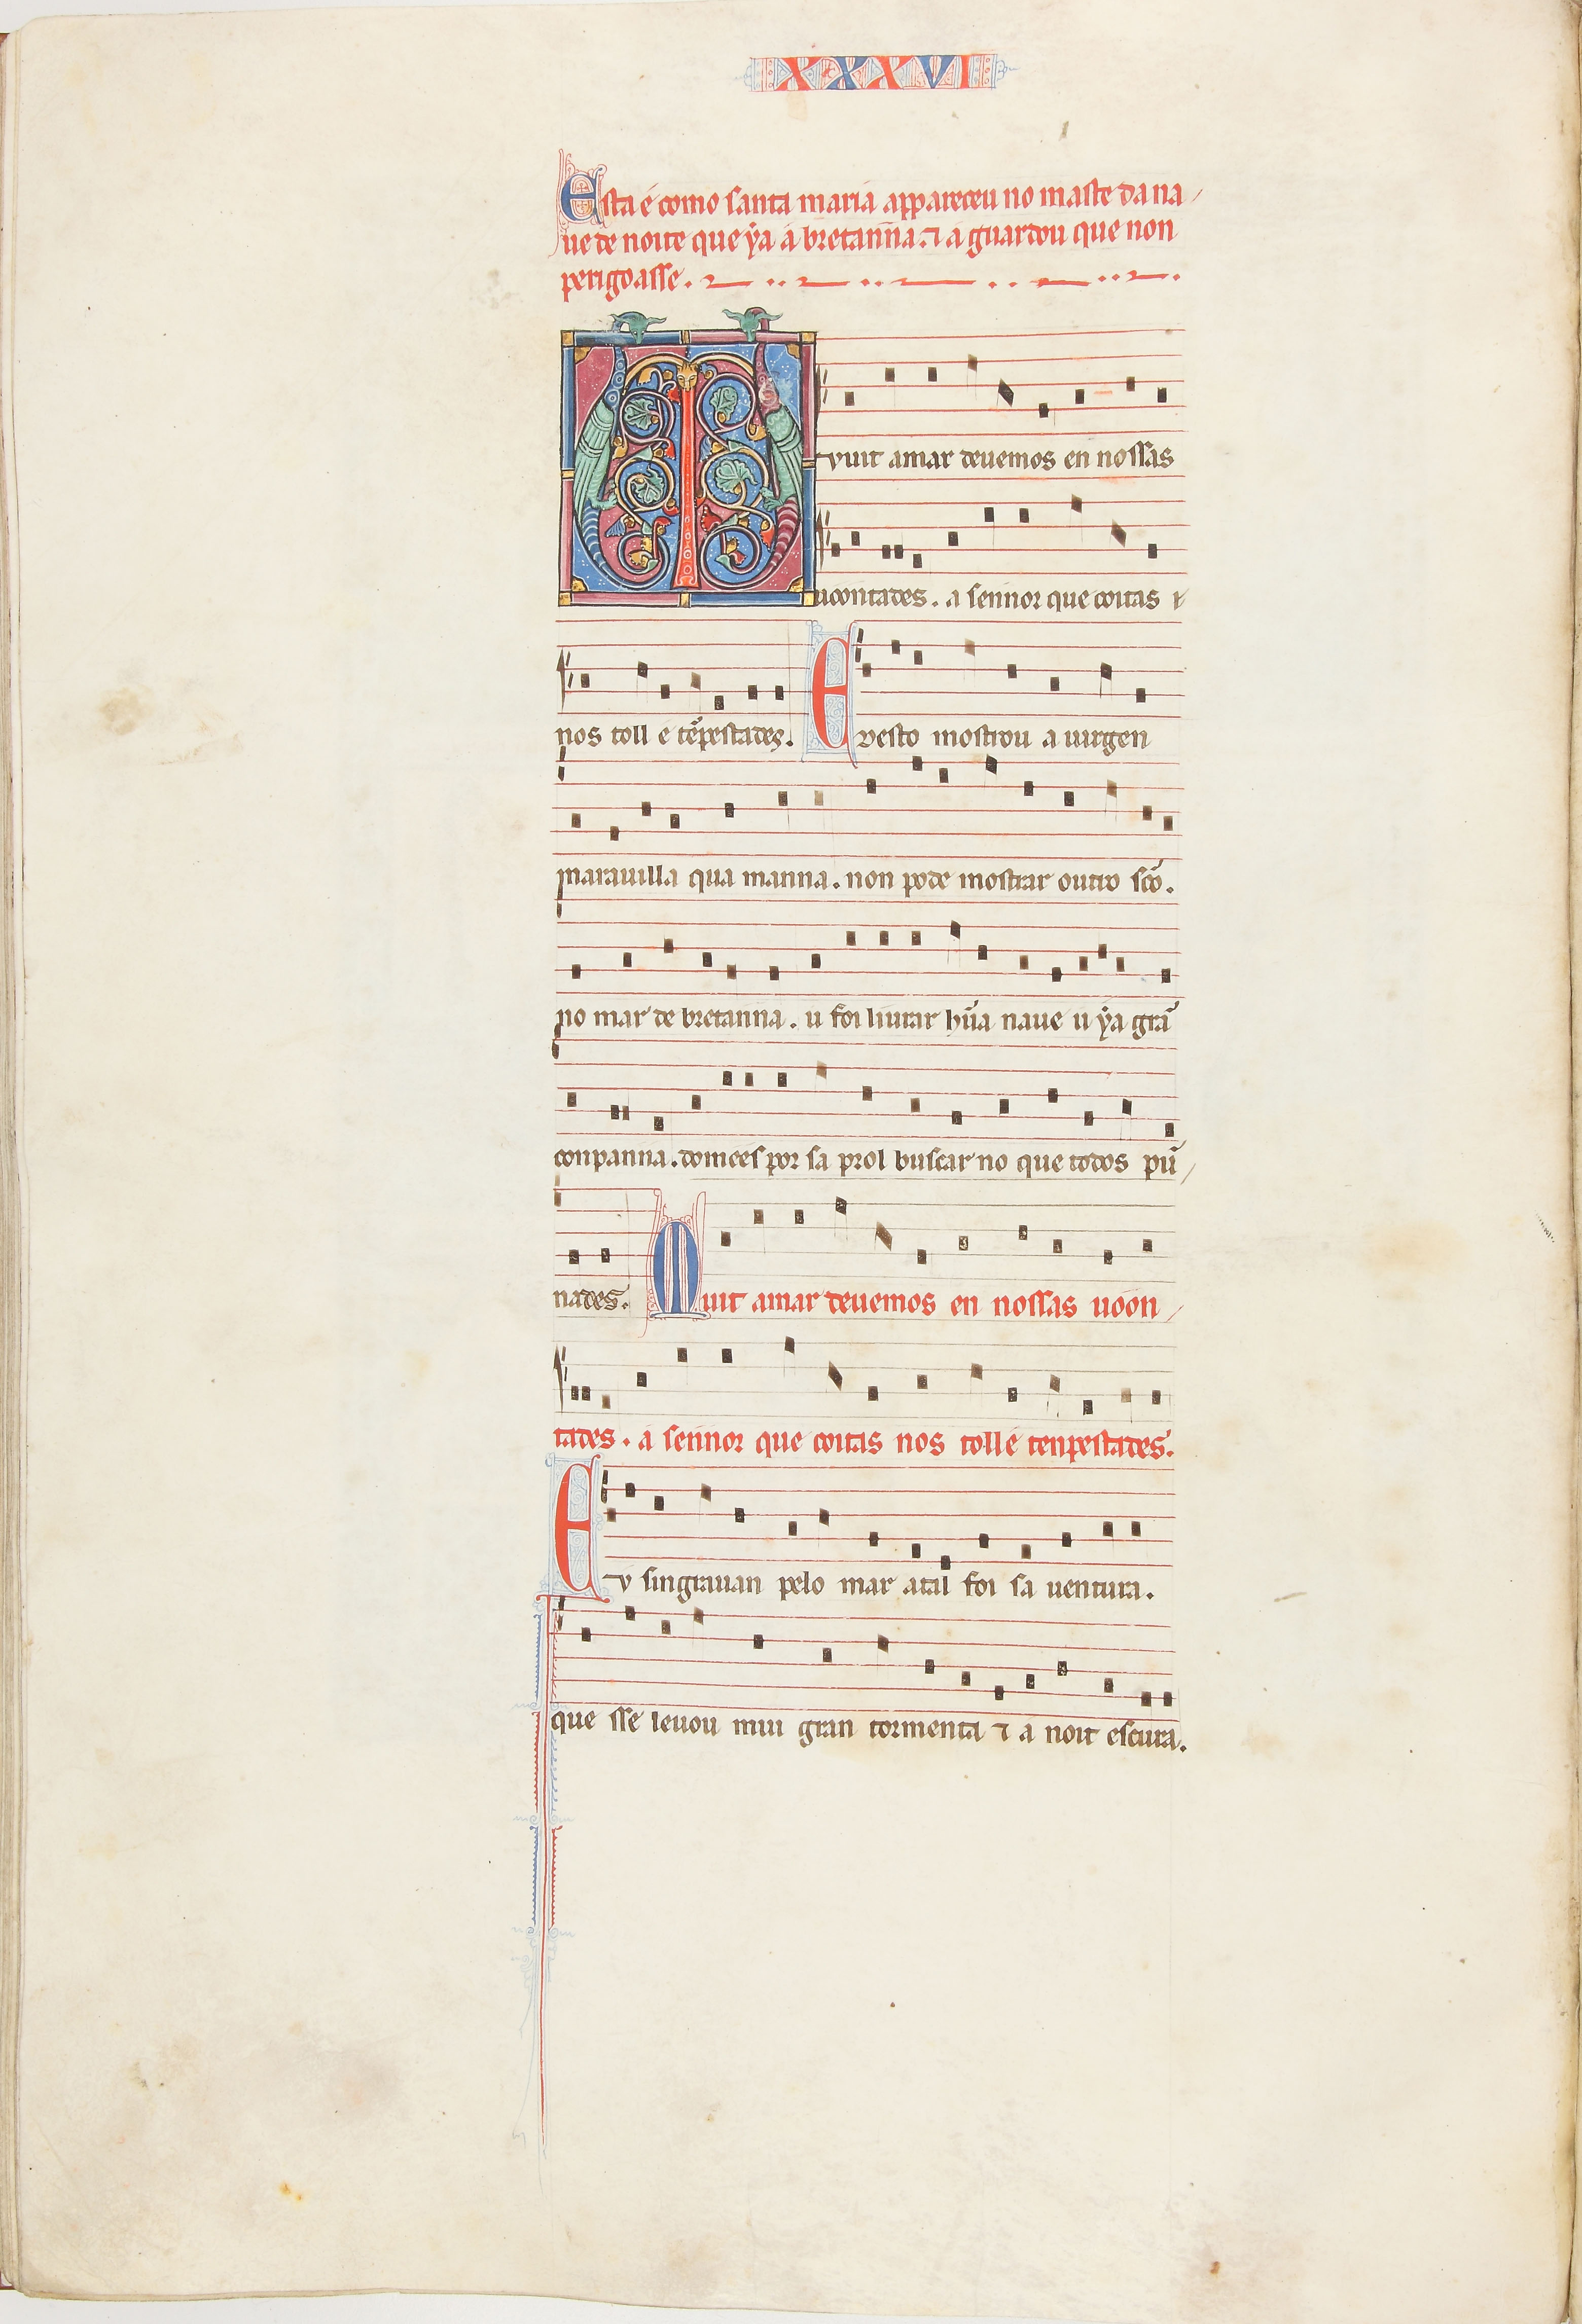 XXXVI
Esta é como santa maria appareceu no maste da na
ue de noite que ýa á bretanna. ⁊ a guardou que non
perigoasse.
Muit amar deuemos en nossas
uoontades. a sennor que coitas é
nos toll e tẽpestades. E desto mostrou a uirgen
marauilla qua manna. non pode mostrar outro scõ.
no mar de bretanna. u foi liurar hũa naue u ýa grã
conpanna. domees por sa prol buscar no que todos pũ
nades. Muit amar deuemos en nossas uoon
tades. a sennor que coitas nos tolle tenpestades.
E u singrauan pelo mar atal foi sa uentura.
que sse leuou mui gran tormenta ⁊ a noit escura.